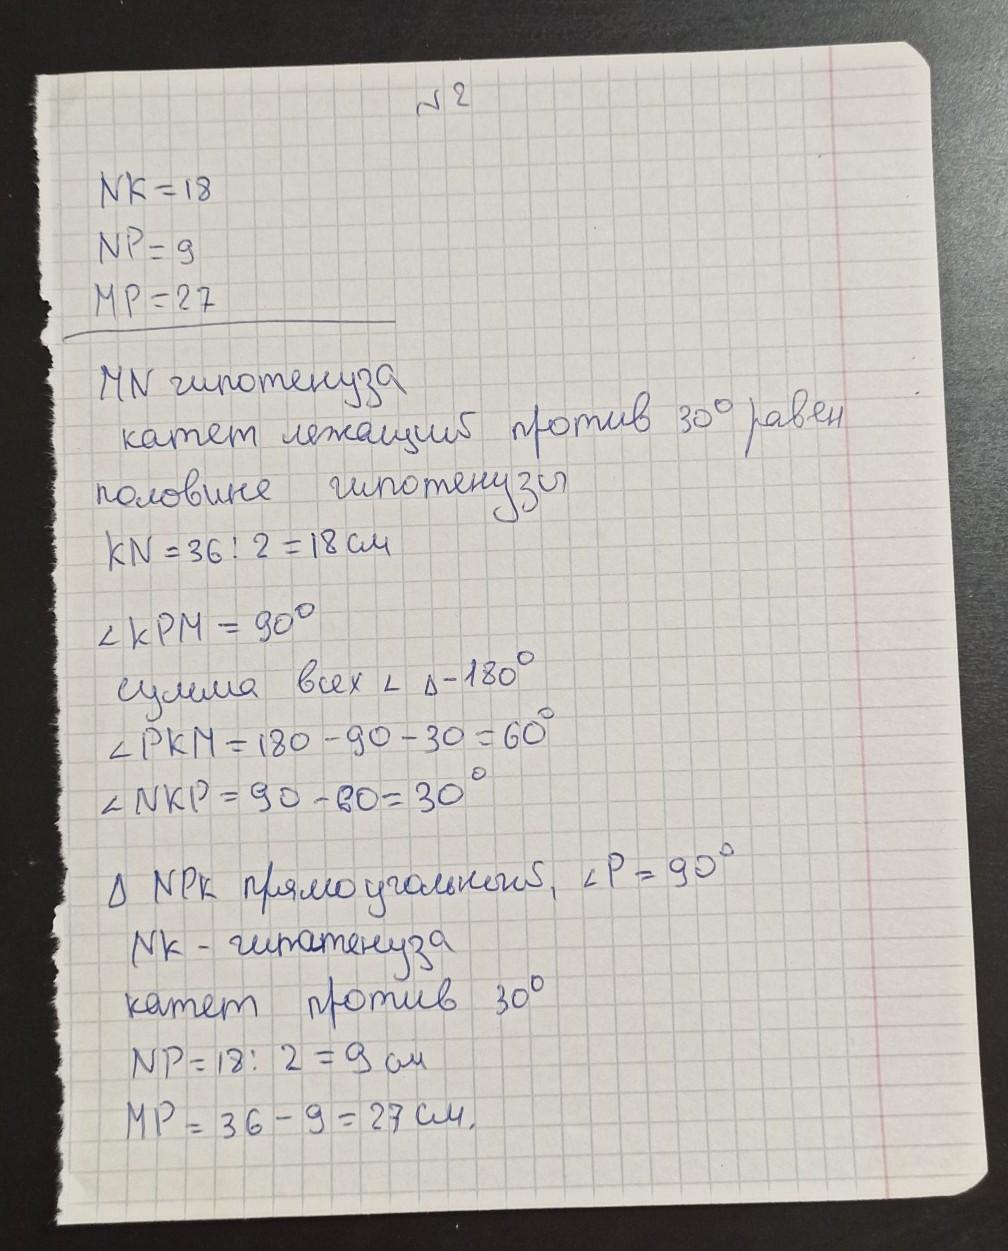 №2
NK=18
NP=9
MP=27
MN гипотенуза
катет лежащий против 30° равен
половине гипотенузы
KN=36:2=18см
∠KPM=90°
сумма всех ∠ Δ-180°
∠PKM=180-90-30=60°
∠NKP=90-60=30°
Δ NPK прямоугольный, ∠P=90°
NK-гипатенуза
катет против 30°
NP=18:2=9см
MP=36-9=27см.